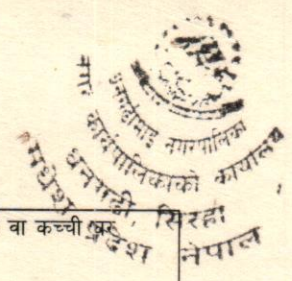 धनगढीमाई नगरपालिका
नगर कार्यपालिकाको कार्यालय
धनगढी, सिरहा
मधेश प्रदेश नेपाल
वा कच्ची घर